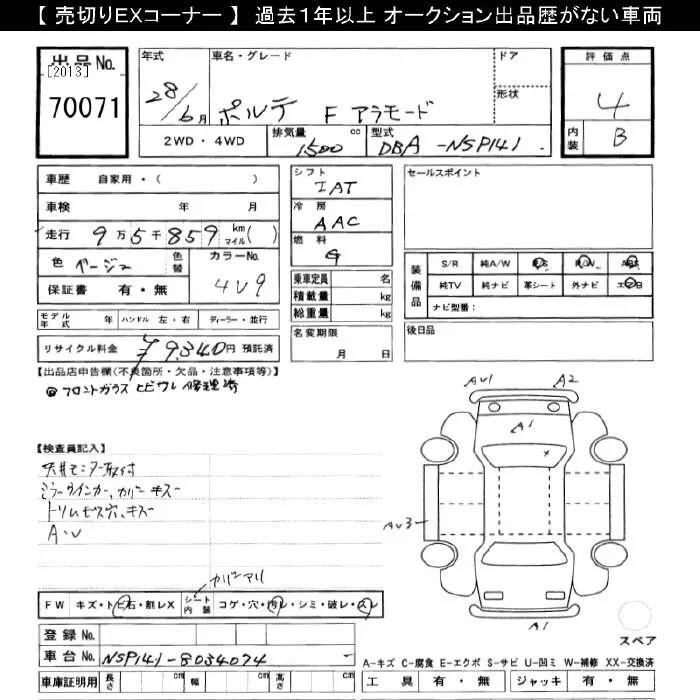 【 売切りEXコーナー 】 過去1年以上 オークション出品歴がない車両
出品No.
[2013]
70071
年式
28/6月
車名・グレード
ポルテ F アラモード
ドア
形状
評価点
4
内装 B
2WD・4WD
排気量 1500 cc
型式 DBA-NSP141
車歴 自家用・( )
車検 年 月
走行 9万5千859 km マイル( )
色 ベージュ 色替 カラーNo. 4V9
保証書 有・無
モデル年式 年 ハンドル 左・右 ディーラー・並行
リサイクル料金 ¥9340円 預託済
シフト
IAT
冷房
AAC
燃料
G
乗車定員 名
積載量 kg
総重量 kg
名変期限
月 日
セールスポイント
装備品
S/R 純A/W P/S P/W ABS
純TV 純ナビ 革シート 外ナビ エアB
ナビ型番:
後日品
【出品店申告欄(不良箇所・欠品・注意事項等)】
フロントガラス ヒビワレ 修理済
【検査員記入】
天井モニター取付
ミラーウインカー、カバーキズ
トリムビス穴、キズ
A・U
カバーアリ
FW キズ・トビ石・割レX シート内装 コゲ・穴・汚レ・シミ・破レ・スレ
登録No.
車台No. NSP141-8034074
車庫証明用 長さ cm 幅 cm 高さ cm
AU1 A2
A1
×
AU3
A1
スペア
A-キズ C-腐食 E-エクボ S-サビ U-凹ミ W-補修 XX-交換済
工具 有・無 ジャッキ 有・無